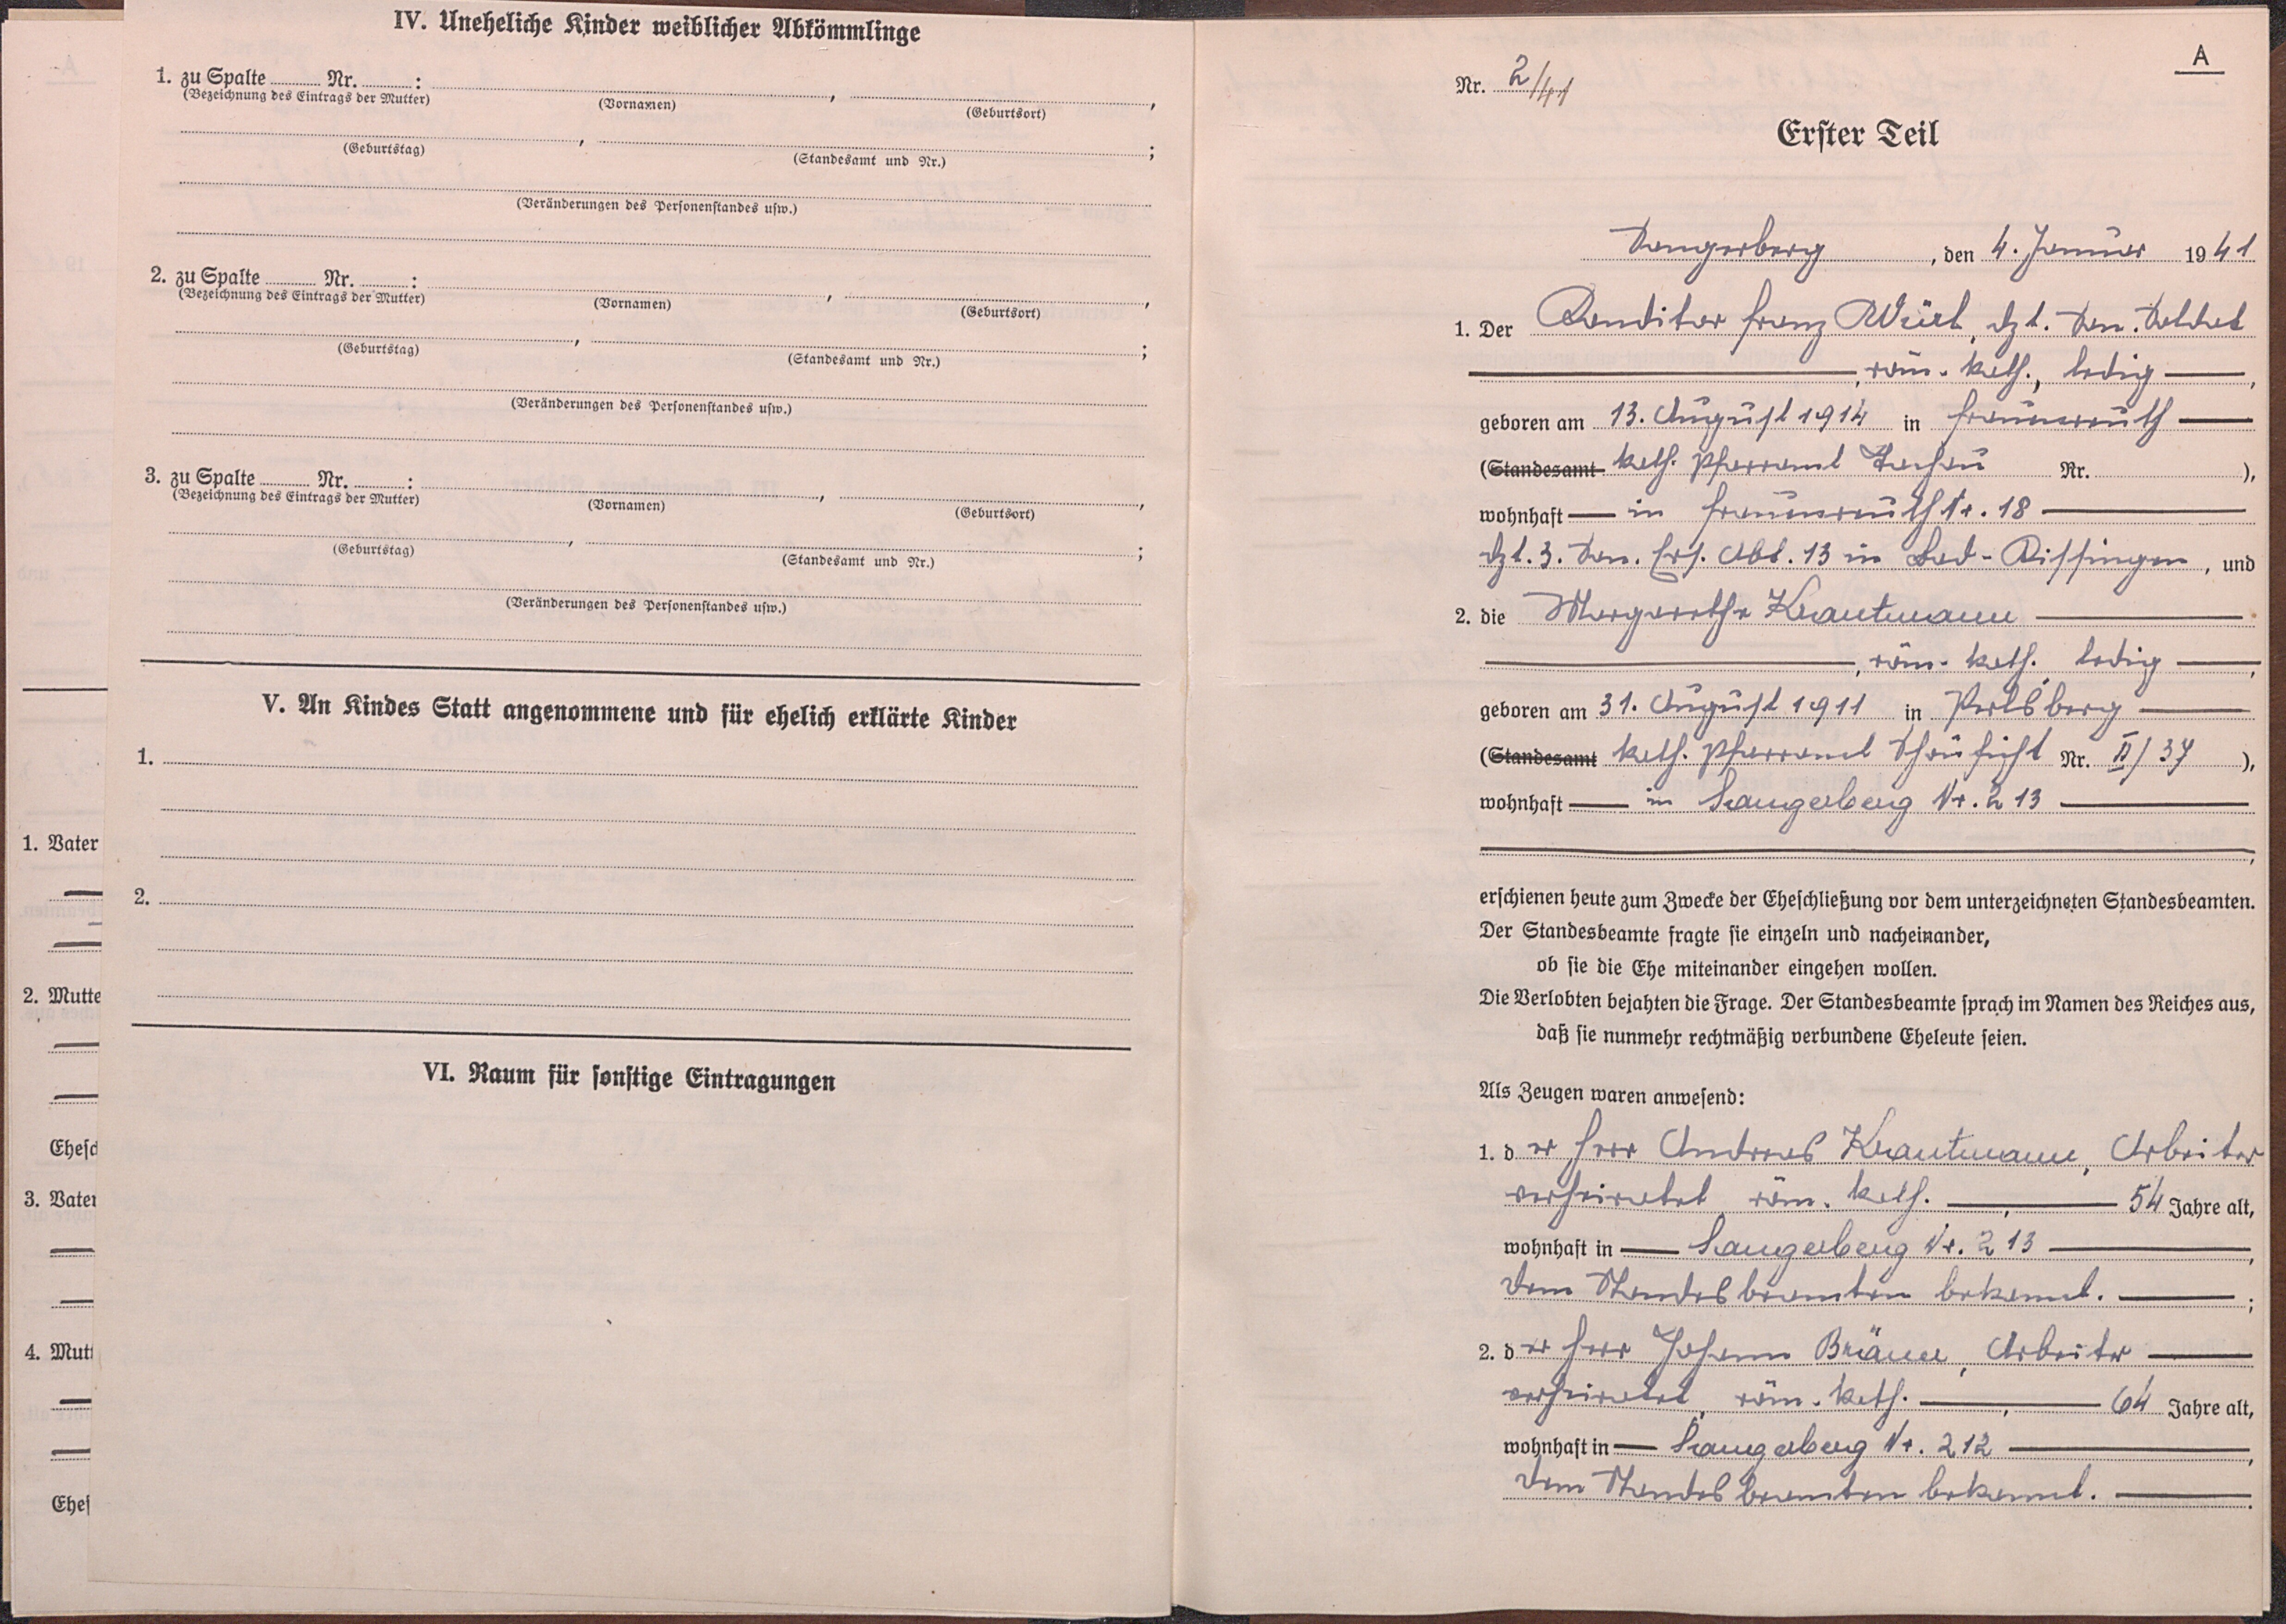 IV. Uneheliche Kinder weiblicher Abkömmlinge
1. zu Spalte Nr. : , ,
(Bezeichnung des Eintrags der Mutter) (Vornamen) (Geburtsort)
, ;
(Geburtstag) (Standesamt und Nr.)
(Veränderungen des Personenstandes usw.)
2. zu Spalte Nr. : , ,
(Bezeichnung des Eintrags der Mutter) (Vornamen) (Geburtsort)
, ;
(Geburtstag) (Standesamt und Nr.)
(Veränderungen des Personenstandes usw.)
3. zu Spalte Nr. : , ,
(Bezeichnung des Eintrags der Mutter) (Vornamen) (Geburtsort)
, ;
(Geburtstag) (Standesamt und Nr.)
(Veränderungen des Personenstandes usw.)
V. An Kindes Statt angenommene und für ehelich erklärte Kinder
1.
2.
VI. Raum für sonstige Eintragungen
1. Vater
2. Mutte
Ehesch
3. Vater
4. Mutt
Ehes
A
Nr. 2/41
Erster Teil
Sangerberg , den 4. Januar 1941
1. Der Konditor Franz Würl, dzt. San. Soldat
, röm. kath., ledig ,
geboren am 13. August 1914 in Frauenreuth
(Standesamt kath. Pfarramt Nr. ),
wohnhaft in Frauenreuth Nr. 18
dzt. 3. San. Ers. Abt. 13 in Bad-Kissingen, und
2. die Margarethe Krautmann
, röm. kath. ledig ,
geboren am 31. August 1911 in Perlsberg
(Standesamt kath. Pfarramt Schönficht Nr. II/37 ),
wohnhaft in Sangerberg Nr. 213
,
erschienen heute zum Zwecke der Eheschließung vor dem unterzeichneten Standesbeamten.
Der Standesbeamte fragte sie einzeln und nacheinander,
ob sie die Ehe miteinander eingehen wollen.
Die Verlobten bejahten die Frage. Der Standesbeamte sprach im Namen des Reiches aus,
daß sie nunmehr rechtmäßig verbundene Eheleute seien.
Als Zeugen waren anwesend:
1. der Herr Andreas Krautmann, Arbeiter
verheiratet, röm. kath. , 54 Jahre alt,
wohnhaft in Sangerberg Nr. 213 ,
dem Standesbeamten bekannt. ;
2. der Herr Johann Bräuer, Arbeiter
verheiratet, röm. kath. , 64 Jahre alt,
wohnhaft in Sangerberg Nr. 212 ,
dem Standesbeamten bekannt. .